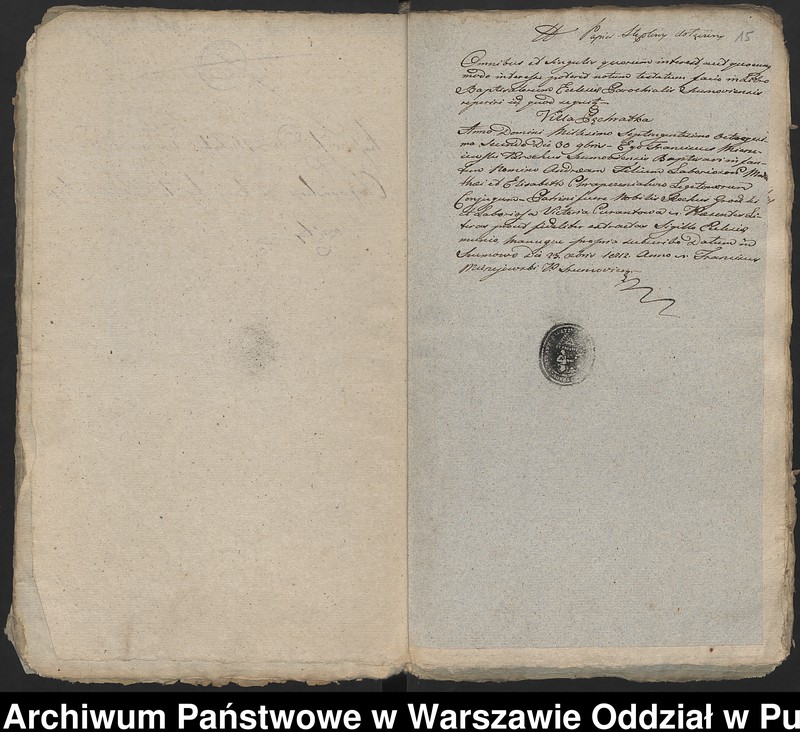 Papier Stęplowy dołączony 15
Omnibus et Singulis quorum interest aut quocunq
modo interesse poterit notum testatum facio in Libro
Baptisatorum Ecclesiae Parochialis Szumoviensis
reperiri id quod sequitur
Villa Pechratka
Anno Domini Millesimo Septingentesimo Octogesi
mo Secundo Die 30 9bris Ego Franciscus Mierze
iewski Parochus Szumoviensis Baptisavi infan
tem Nomine Andream Filium Laboriosorum Mat
thei et Elisabeth Legitimorum
Conjugum Patrini fuere Nobilis Rochus
et Laboriosa Victoria Praesentes Li
teras prout fideliter extractas Sigillo Eccles
munio manuque propria subscribo Datum in
Szumowo Die 23 1812 Anno Franciscus
Mierzejewski
Archiwum Państwowe w Warszawie Oddział w Pu